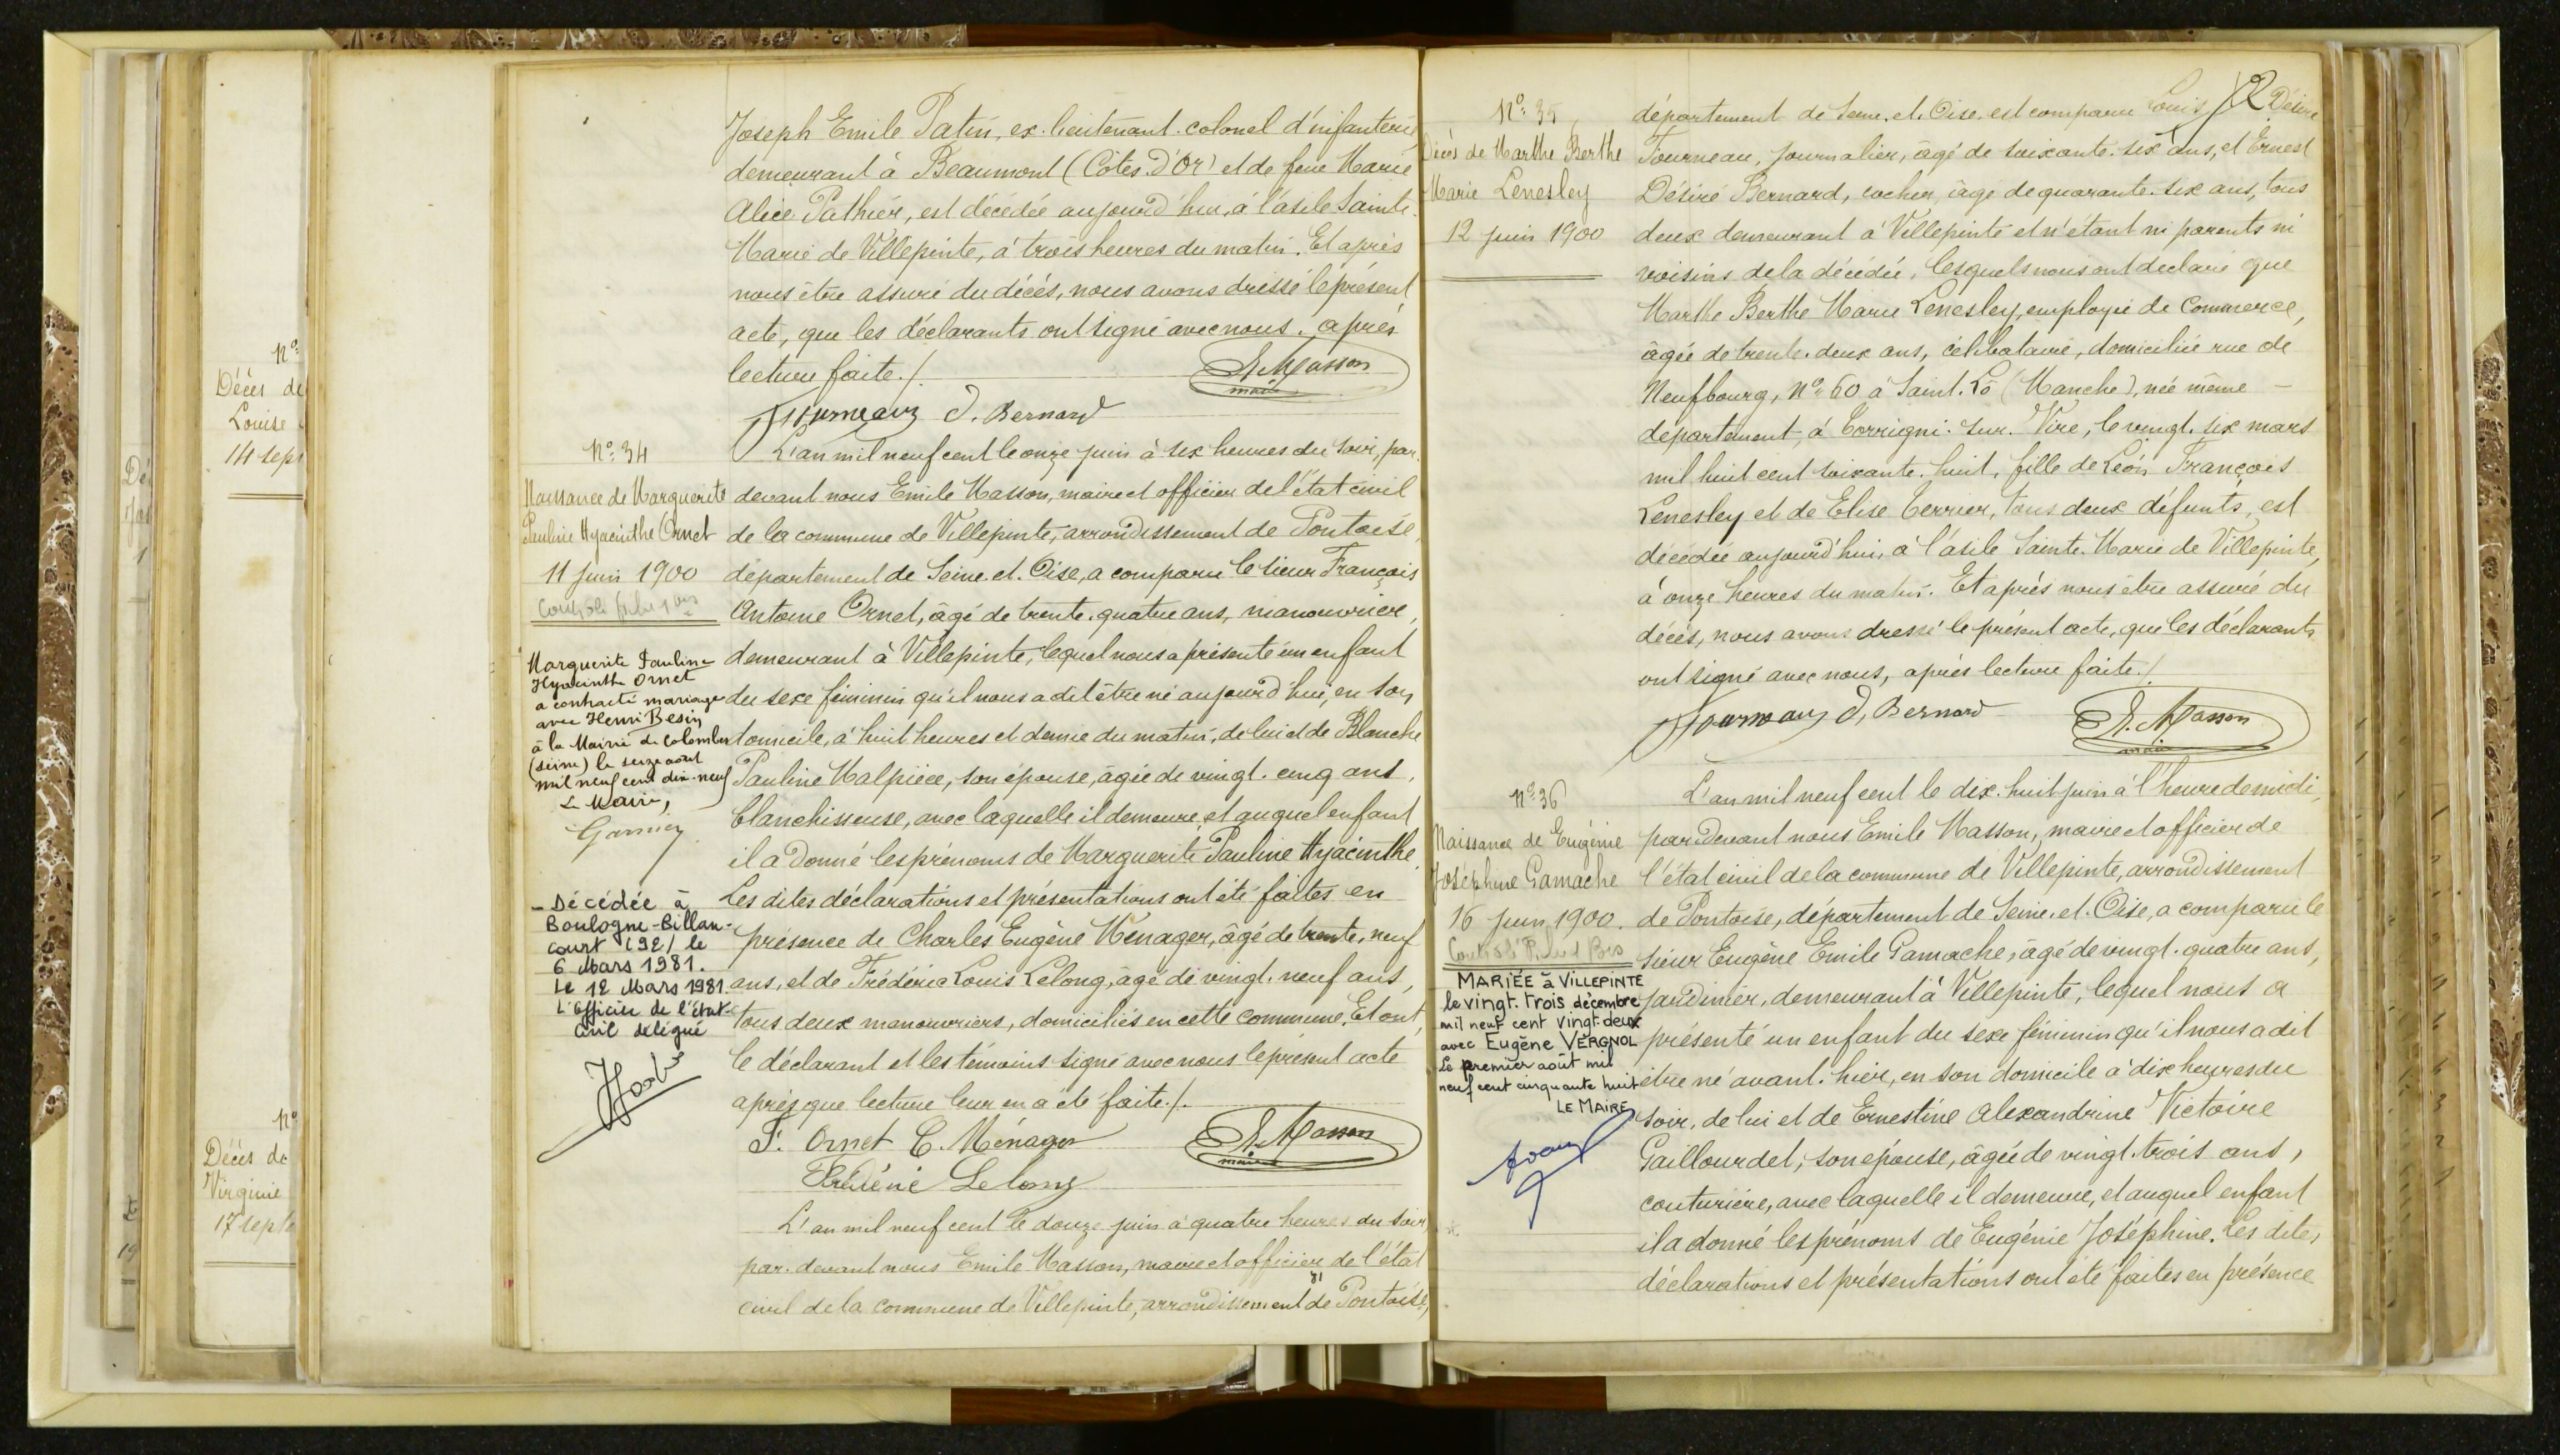 Nº
Décès de
Louise
14 sept
Nº
Décès de
Virginie
17 sept
Joseph Emile Patin, ex-lieutenant-colonel d'infanterie
demeurant à Beaumont (Côtes-d'Or) et de feue Marie
Alice Pathier, est décédée aujourd'hui, à l'asile Sainte-
Marie de Villepinte, à trois heures du matin. Et après
nous être assuré du décès, nous avons dressé le présent
acte, que les déclarants ont signé avec nous, après
lecture faite./.
E. Masson
maire
Fourneaux D. Bernard
Nº 34
Naissance de Marguerite
Pauline Hyacinthe Ornet
11 juin 1900
Marguerite Pauline
Hyacinthe Ornet
a contracté mariage
avec Henri Besin
à la Mairie de Colombes
(Seine) le seize août
mil neuf cent dix-neuf
Le Maire,
Garnier
- Décédée à
Boulogne-Billan-
court (92) le
6 Mars 1981.
Le 12 Mars 1981
L'officier de l'état-
civil délégué
L'an mil neuf cent le onze juin à six heures du soir, par
devant nous Emile Masson, maire et officier de l'état civil
de la commune de Villepinte, arrondissement de Pontoise,
département de Seine-et-Oise, a comparu le sieur François
Antoine Ornet, âgé de trente-quatre ans, manouvrier,
demeurant à Villepinte, lequel nous a présenté un enfant
du sexe féminin qu'il nous a dit être né aujourd'hui, en son
domicile, à huit heures et demie du matin, de lui et de Blanche
Pauline Malpièce, son épouse, âgée de vingt-cinq ans,
blanchisseuse, avec laquelle il demeure, et auquel enfant
il a donné les prénoms de Marguerite Pauline Hyacinthe
Les dites déclarations et présentations ont été faites en
présence de Charles Eugène Ménager, âgé de trente-neuf
ans, et de Frédéric Louis Lelong, âgé de vingt-neuf ans,
tous deux manouvriers, domiciliés en cette commune. Et ont
le déclarant et les témoins signé avec nous le présent acte
après que lecture leur en a été faite./.
F. Ornet C. Ménager E. Masson
maire
Frédéric Lelong
L'an mil neuf cent le douze juin à quatre heures du soir
par-devant nous Emile Masson, maire et officier de l'état
civil de la commune de Villepinte, arrondissement de Pontoise,
Nº 35
Décès de Marthe Berthe
Marie Lenesley
12 juin 1900
département de Seine-et-Oise, est comparu Louis Désiré
Fourneau, journalier, âgé de soixante-six ans, et Ernest
Désiré Bernard, cocher, âgé de quarante-six ans, tous
deux demeurant à Villepinte et n'étant ni parents ni
voisins de la décédée, lesquels nous ont déclaré que
Marthe Berthe Marie Lenesley, employée de Commerce,
âgée de trente-deux ans, célibataire, domiciliée rue de
Neufbourg, Nº 60 à Saint-Lô (Manche), née même
département, à Torrigni-sur-Vire, le vingt-six mars
mil huit cent soixante-huit, fille de Léon François
Lenesley et de Elise Terrier, tous deux défunts, est
décédée aujourd'hui, à l'asile Sainte-Marie de Villepinte,
à onze heures du matin. Et après nous être assuré du
décès, nous avons dressé le présent acte, que les déclarants
ont signé avec nous, après lecture faite./.
Fourneaux D. Bernard E. Masson
maire
Nº 36
Naissance de Eugénie
Joséphine Gamache
16 juin 1900.
MARIÉE à VILLEPINTE
le vingt-trois décembre
mil neuf cent vingt-deux
avec Eugène VERGNOL
Le premier août mil
neuf cent cinquante huit
LE MAIRE
L'an mil neuf cent le dix-huit juin à l'heure de midi,
par devant nous Emile Masson, maire et officier de
l'état civil de la commune de Villepinte, arrondissement
de Pontoise, département de Seine-et-Oise, a comparu le
sieur Eugène Emile Gamache, âgé de vingt-quatre ans,
jardinier, demeurant à Villepinte, lequel nous a
présenté un enfant du sexe féminin qu'il nous a dit
être né avant-hier, en son domicile à dix heures du
soir, de lui et de Ernestine Alexandrine Victoire
Gaillourdet, son épouse, âgée de vingt-trois ans,
couturière, avec laquelle il demeure, et auquel enfant
il a donné les prénoms de Eugénie Joséphine. Les dites
déclarations et présentations ont été faites en présence